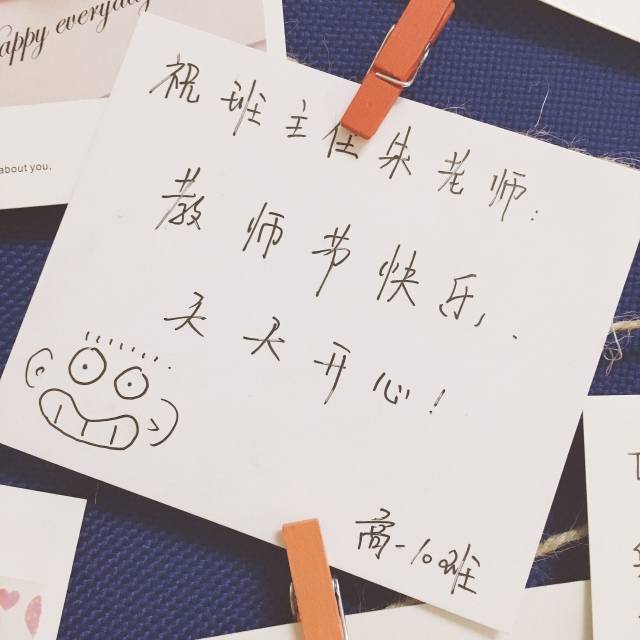 happy everyday
about you,
祝班主任朱老师:
教师节快乐、
天天开心!
高一100班